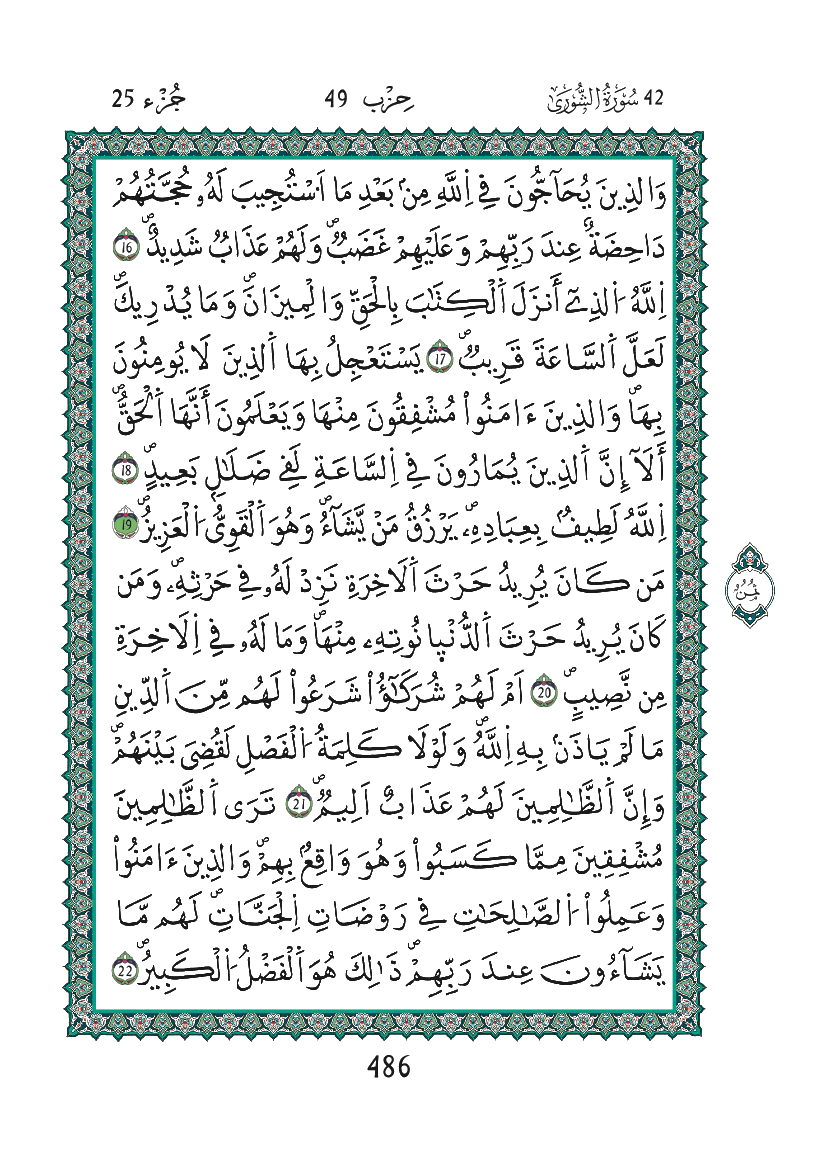 42 سُورَةُ الشُّورَىٰ
حِزْب 49
جُزْء 25
وَالذِينَ يُحَآجُّونَ فِے اِ۬للَّهِ مِنۢ بَعْدِ مَا اَ۟سْتُجِيبَ لَهُۥ حُجَّتُهُمْ
دَاحِضَةٌ عِندَ رَبِّهِمْ وَعَلَيْهِمْ غَضَبٞ وَلَهُمْ عَذَابٞ شَدِيدٌ 16
اِ۬للَّهُ اُ۬لذِےٓ أَنزَلَ اَ۬لْكِتَٰبَ بِالْحَقِّ وَالْمِيزَانَ وَمَا يُدْرِيكَ
لَعَلَّ اَ۬لسَّاعَةَ قَرِيبٞ 17 يَسْتَعْجِلُ بِهَا اَ۬لذِينَ لَا يُومِنُونَ
بِهَا وَالذِينَ ءَامَنُواْ مُشْفِقُونَ مِنْهَا وَيَعْلَمُونَ أَنَّهَا اَ۬لْحَقُّ
أَلَآ إِنَّ اَ۬لذِينَ يُمَارُونَ فِے اِ۬لسَّاعَةِ لَفِے ضَلَٰلِۢ بَعِيدٍ 18
اِ۬للَّهُ لَطِيفُۢ بِعِبَادِهِۦ يَرْزُقُ مَنْ يَّشَآءُ وَهُوَ اَ۬لْقَوِيُّ اُ۬لْعَزِيزُ 19
مَن كَانَ يُرِيدُ حَرْثَ اَ۬لَاخِرَةِ نَزِدْ لَهُۥ فِے حَرْثِهِۦ وَمَن
كَانَ يُرِيدُ حَرْثَ اَ۬لدُّنْيٜا نُوتِهِۦ مِنْهَا وَمَا لَهُۥ فِے اِ۬لَاخِرَةِ
مِن نَّصِيبٍ 20 اَمْ لَهُمْ شُرَكَٰٓؤُاْ شَرَعُواْ لَهُم مِّنَ اَ۬لدِّينِ
مَا لَمْ يَاذَنۢ بِهِ اِ۬للَّهُ وَلَوْلَا كَلِمَةُ اُ۬لْفَصْلِ لَقُضِيَ بَيْنَهُمْ
وَإِنَّ اَ۬لظَّٰلِمِينَ لَهُمْ عَذَابٌ اَلِيمٞ 21 تَرَى اَ۬لظَّٰلِمِينَ
مُشْفِقِينَ مِمَّا كَسَبُواْ وَهُوَ وَاقِعُۢ بِهِمْ وَالذِينَ ءَامَنُواْ
وَعَمِلُواْ اُ۬لصَّٰلِحَٰتِ فِے رَوْضَاتِ اِ۬لْجَنَّاتِ لَهُم مَّا
يَشَآءُونَ عِندَ رَبِّهِمْ ذَٰلِكَ هُوَ اَ۬لْفَضْلُ اُ۬لْكَبِيرُ 22
ثُمُن
486